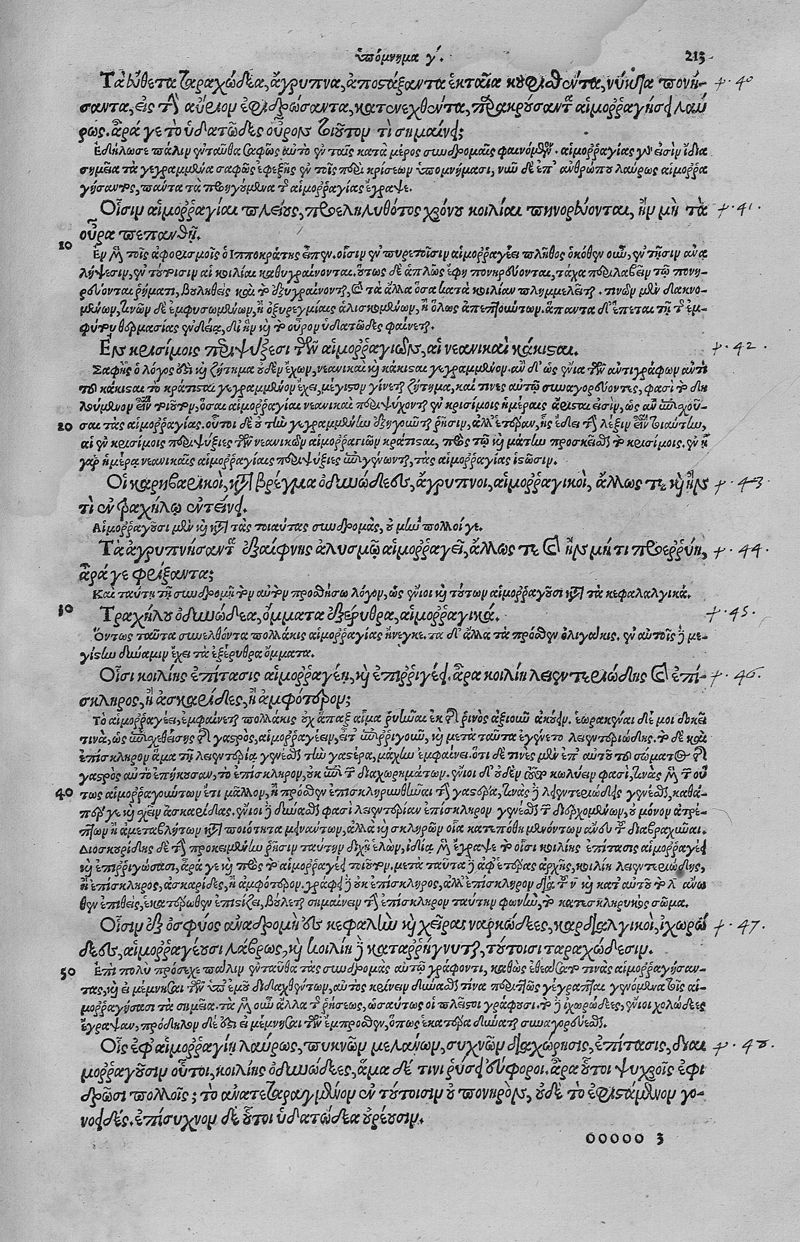 ὑπόμνημα γ΄. 213
Τὰ ταραχώδεα, ἄγρυπνα, ἀποστάξαντα ἑκταῖα κουφισθέντα, νύκτα πονή- +· 40
σαντα, εἰς τὴν αὔριον ἐφιδρώσαντα, κατενεχθέντα, παρακρούσαντα αἱμορραγήσει λαύ
ρως. ἆρά γε τὸ ὑδατῶδες οὖρον τοιοῦτόν τι σημαίνει;
Ἐδήλωσε πάλιν ἐνταῦθα σαφῶς αὐτὸ ἐν ταῖς κατὰ μέρος συνδρομαῖς φαινόμενον. αἱμορραγίας γὰρ εἰσιν ἴδια
σημεῖα τὰ γεγραμμένα σαφῶς ἐφεξῆς ἐν τοῖς περὶ κρίσεων ὑπομνήμασι, νῦν δὲ ἐπ' ἀνθρώπου λαύρως αἱμορρα
γήσαντος, πάντα τὰ προηγούμενα τῆς αἱμορραγίας ἔγραψε.
Οἷσιν αἱμορραγίαι πλείους, προεληλυθότος χρόνου κοιλίαι πονηρεύονται, ἢν μὴ τὰ +· 41·
οὖρα πεπανθῇ.
10 Ἐν μὲν τοῖς ἀφορισμοῖς ὁ Ἱπποκράτης εἰπὼν. οἷσιν ἐν πυρετοῖσιν αἱμορραγέει πλῆθος ὁκόθεν οὖν, ἐν τῇσιν ἀνα
λήψεσιν, ἐν τούτοισιν αἱ κοιλίαι καθυγραίνονται. οὕτως δὲ ἁπλῶς ἔφη πονηρεύονται, τάχα περιλαβεῖν τῷ πονη-
ρεύονται ῥήματι, βουληθεὶς καὶ τὸ ἐξυγραίνονται, καὶ τὰ ἄλλα ὅσα κατὰ κοιλίαν πλημμελεῖται. τινῶν μὲν δακνο-
μένων, τινῶν δὲ ἐμφυσωμένων, ἢ ὀξυρεγμίαις ἁλισκομένων, ἢ ὅλως ἀπεπτούντων. ἅπαντα δὲ ἕπεται τῇ τῆς ἐμ-
φύτου θερμασίας ἐνδείᾳ, δι' ἣν καὶ τὸ οὖρον ὑδατῶδες φαίνεται.
Ἐν κρισίμοις περιψύξεσι τῶν αἱμορραγιῶν, αἱ νεανικαὶ κάκισται. +· 42·
Σαφὴς ὁ λόγος ἐστὶ καὶ ζήτημα οὐδὲν ἔχων, νεανικαὶ καὶ κάκισται γεγραμμένον. ἀν δ' ὡς ἔνια τῶν ἀντιγράφων ἀντὶ
τοῦ κάκισται τὸ κράτισται γεγραμμένον ἔχει, μέγιστον γίνεται ζήτημα, καί τινες αὐτῷ συναγορεύοντες, φασὶ τὸ δη
λούμενον εἶναι τοιοῦτον, ὅσαι αἱμορραγίαι νεανικαὶ περιψύχονται ἐν κρισίμοις ἡμέραις ἄρισταί εἰσιν, ὡς ἂν ἐπιχού-
20 σαι τὰς αἱμορραγίας. οὗτοι δὲ οὐ τὴν γεγραμμένην ἐξηγοῦνται ῥῆσιν, ἀλλ' ἑτέραν, ἧς ἔδει τὴν λέξιν εἶναι τοιαύτην,
αἱ ἐν κρισίμοις περιψύξιες τῶν νεανικῶν αἱμορραγιῶν κράτισται, πρὸς τῷ καὶ μάτην προσκεῖσθαι τὸ κρισίμοις. ἐν ᾗ
γὰρ ἡμέρᾳ νεανικαῖς αἱμορραγίαις περιψύξιες ἐπιγένωνται, τὰς αἱμορραγίας ἱστῶσιν.
Οἱ καρηβαρικοὶ, κατὰ βρέγμα ὀδυνώδεες, ἄγρυπνοι, αἱμορραγικοὶ, ἄλλως τε καὶ ἤν +· 43·
τι ἐν τραχήλῳ ἐντείνῃ.
Αἱμορραγοῦσι μὲν καὶ κατὰ τὰς τοιαύτας συνδρομὰς, οὐ μὴν πολλοί γε.
Τὰ ἀγρυπνήσαντα ἐξαίφνης ἀλυσμῷ αἱμορραγεῖ, ἄλλως τε καὶ ἤν μή τι προερρύη, +· 44·
ἆρά γε φρίξαντα;
Καὶ ταύτῃ τῇ συνδρομῇ τὸν αὐτὸν προσθήσω λόγον, ὡς ἔνιοι καὶ τούτων αἱμορραγοῦσι κατὰ τὰ κεφαλαλγικά.
30 Τραχήλου ὀδυνώδεα, ὄμματα ἐξέρυθρα, αἱμορραγικά. +· 45·
Ὄντως ταῦτα συνελθόντα πολλάκις αἱμορραγίας ἤνεγκε. τὰ δ' ἄλλα τὰ πρόσθεν ὀλιγάκις. ἐν αὐτοῖς δὲ με-
γίστην δύναμιν ἔχει τὰ ἐξέρυθρα ὄμματα.
Οἷσι κοιλίης ἐπίστασις αἱμορραγέῃ, καὶ ἐπιρριγέει. ἆρα κοιλίη λειεντεριώδης καὶ ἐπί- +· 46·
σκληρος, ἢ ἀσκαρίδες, ἢ ἀμφότερον;
Τὸ αἱμορραγέει, ἐμφαίνεται πολλάκις οὐχ ἅπαξ αἷμα ῥυῆναι ἐκ τῆς ῥινὸς ἀξιοῦν ἀκούειν. ἑωρακέναι δέ μοι δοκεῖ
τινὰ, ὡς ἐπισχεθείσης τῆς γαστρὸς, αἱμορραγέειν, εἶτ' ἐπιρριγοῦν, καὶ μετὰ ταῦτα ἐγένετο λειεντεριώδης. τὸ δὲ καὶ
ἐπίσκληρον ἅμα τῇ λειεντερίᾳ γενέσθαι τὴν γαστέρα, μάχην ἐμφαίνει. ὅτι δέ τινες μὲν ἐπ' αὐτοῦ τοῦ σώματος τῆς
γαστρὸς αὐτὸ ἐπήκουσαν, τὸ ἐπίσκληρον, οὐκ ἐπὶ τῶν διαχωρημάτων. ἔνιοι δὲ οὐδὲν κωλύειν φασὶ, τινὰς μὲν τῶν οὕ
40 τως αἱμορραγούντων ἔτι μᾶλλον, ἢ πρόσθεν ἐπισκληρυνθῆναι τὴν γαστέρα, τινὰς δὲ λειεντεριώδεις γενέσθαι, καθά-
περ γε καὶ σχεῖν ἀσκαρίδας. ἔνιοι δὲ δύνασθαί φασι λειεντερίαν ἐπίσκληρον γενέσθαι τῶν διερχομένων, οὐ μόνον ἀτρέ-
πτων ἢ ἀμεταβλήτων κατὰ ποιότητα μεινάντων, ἀλλὰ καὶ σκληρῶν οἷα κατεπόθη μενόντων ἄνευ τοῦ διαβραχῆναι.
Διοσκορίδης δὲ τὴν προκειμένην ῥῆσιν ταύτην διχῆ ἑλὼν, ἰδίᾳ μὲν ἔγραψε τὸ οἷσι κοιλίης ἐπίστασις αἱμορραγέει
καὶ ἐπιρριγώσασι, ἆρά γε καὶ πρὸς τὸ αἱμορραγέει τοιοῦτον. μετὰ ταῦτα δὲ ἀφ' ἑτέρας ἀρχῆς, κοιλίη λειεντεριώδης,
ἢ ἐπίσκληρος, ἀσκαρίδες, ἢ ἀμφότερον. γράφει δὲ οὐκ ἐπίσκληρος, ἀλλ' ἐπίσκληρον διὰ τοῦ ν καὶ κατ' αὐτὸ τὸ ἄνω
θεν ἐπιθεὶς, ἑκατέρωθεν ἐπιστίζει, βούλεται σημαίνειν τὴν ἐπίσκληρον ταύτην φωνὴν, τὸ κατεσκληρυκὸς σῶμα.
Οἷσιν ἐξ ὀσφύος ἀναδρομὴ εἰς κεφαλὴν καὶ χεῖρας ναρκώδεες, καρδιαλγικοὶ, ἰχωρώ +· 47·
δεες, αἱμορραγέουσι λάβρως, καὶ κοιλίη δὲ καταρρήγνυται, τούτοισι ταραχώδεσιν.
50 Ἐπὶ πολὺ πρόσεχε πάλιν ἐνταῦθα τὰς συνδρομὰς αὐτῷ γράφοντι, καθὼς ἐθεάσατο τινὰς αἱμορραγήσαν-
τας, καὶ εἰ μέμνησαι τῶν ὑπ' ἐμοῦ διδαχθέντων, αὐτὸς κρίνειν δυνήσῃ τίνα περιττῶς γέγραπται γενόμενα τοῖς αἱ-
μορραγήσασι τὰ σημεῖα. τὰ μὲν οὖν ἄλλα τῆς ῥήσεως, ὡσαύτως οἱ πλεῖστοι γράφουσι. τὸ δὲ ἰχωρώδεες, ἔνιοι χολώδεες
ἔγραψαν, πρόδηλον δὲ ὅτι εἰ μέμνησαι τῶν ἔμπροσθεν, ὅπως ἑκατέρᾳ δύναται συναγορεύεσθαι.
Οἷς ἐφ' αἱμορραγίῃ λαύρως, πυκνῶν μελάνων, συχνῶν διαχώρησις, ἐπίστασις, δ' αἱ +· 48·
μορραγοῦσιν οὗτοι, κοιλίης ὀδυνώδεες, ἅμα δέ τινι φύσῃ εὔφοροι. ἆρα οὗτοι ψυχροῖς ἐφι
δρῶσι πολλοῖς; τὸ ἀνατεταραγμένον ἐν τούτοισιν οὐ πονηρὸν, οὐδὲ τὸ ἐφιστάμενον γο-
νοειδές. ἐπίσυχνον δὲ οὗτοι ὑδατώδεα οὐρέουσιν.
ooooo 3